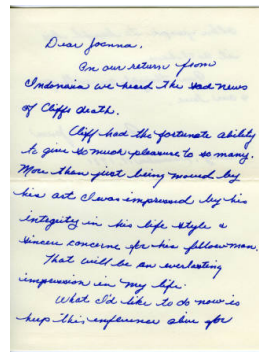 Dear Joanna,
On our return from
Indonaia we heard the sad news
of Cliffs death.
Cliff had the fortunate ability
to give so much pleasure to so many.
More than just being moved by
his art I was impressed by his
integrity in his life style &
sincere concern for his fellow man.
That will be an everlasting
impression in my life.
What I'd like to do now is
keep this influence alive for